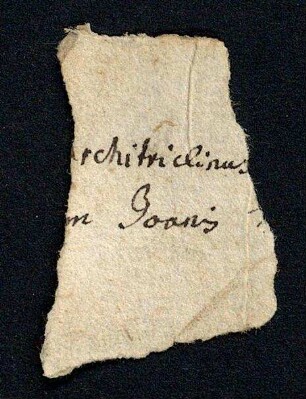 rchitriclinus
m Joanis